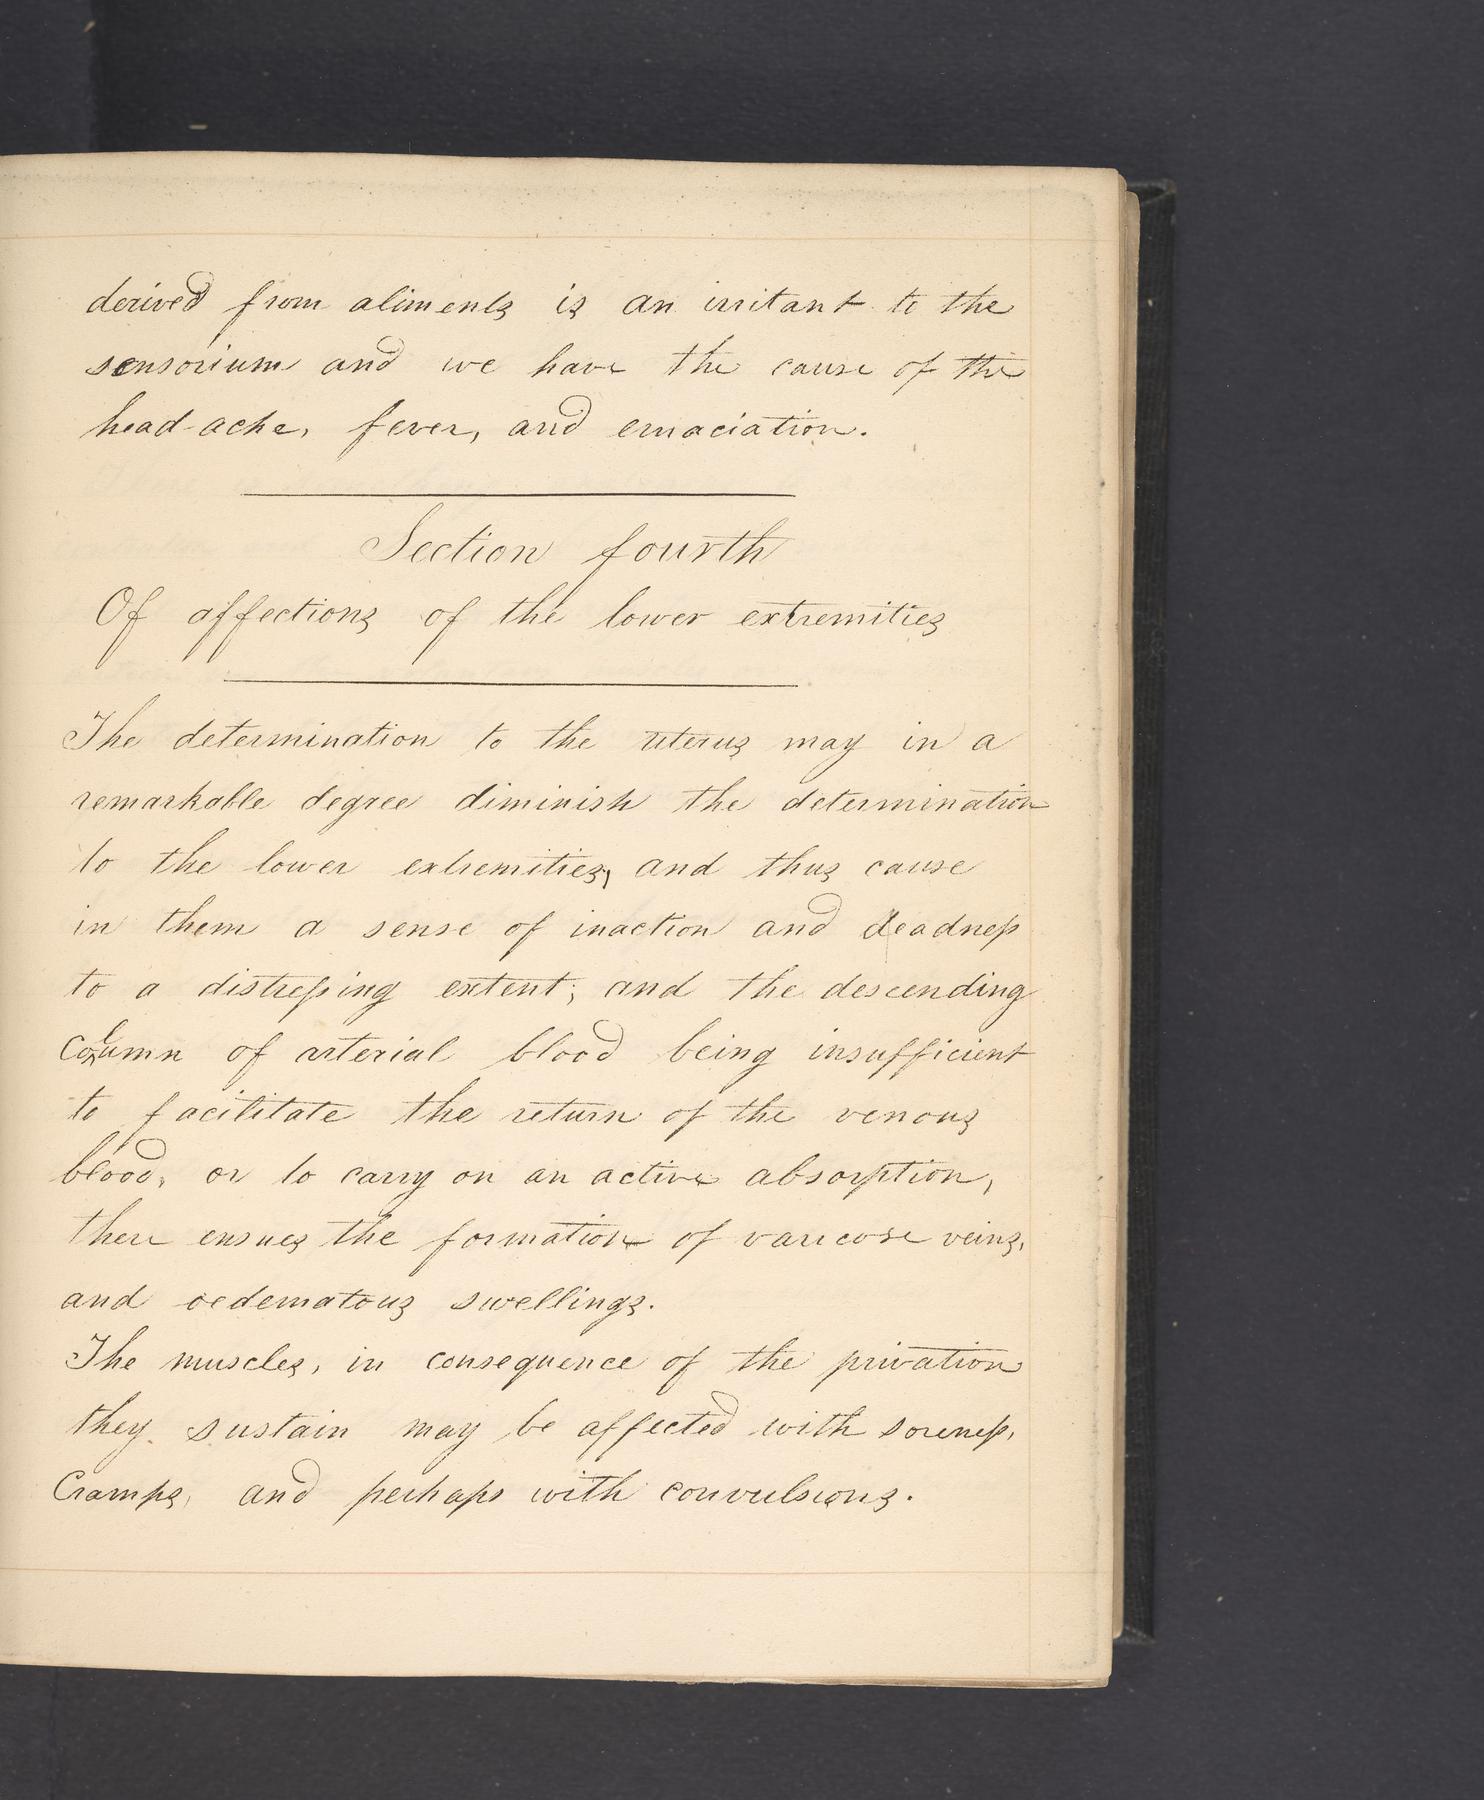 derived from aliments is an irritant to the
sensorium and we have the cause of the
head-ache, fever, and emaciation.
Section fourth
Of affections of the lower extremities
The determination to the uterus may in a
remarkable degree diminish the determination
to the lower extremities, and thus cause
in them a sense of inaction and deadness
to a distressing extent; and the descending
column of arterial blood being insufficient
to facilitate the return of the venous
blood, or to carry on an active absorption,
there ensues the formation of varicose veins,
and oedematous swellings.
The muscles, in consequence of the privation
they sustain may be affected with soreness,
Cramps, and perhaps with convulsions.